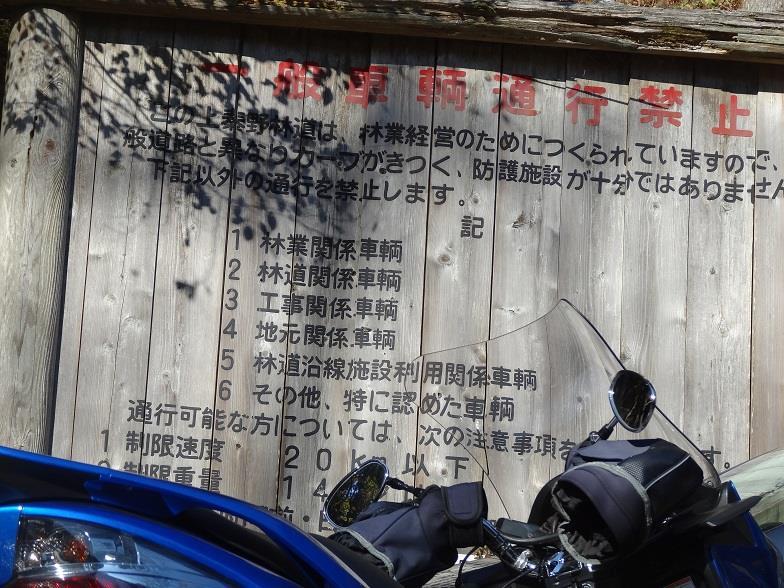 一般車輌通行禁止
この上秦野林道は、林業経営のためにつくられていますので、
般道路と異なりカーブがきつく、防護施設が十分ではありません
下記以外の通行を禁止します。
記
1 林業関係車輌
2 林道関係車輌
3 工事関係車輌
4 地元関係車輌
5 林道沿線施設利用関係車輌
6 その他、特に認めた車輌
通行可能な方については、次の注意事項を す。
1 制限速度 20km以下
制限重量 14